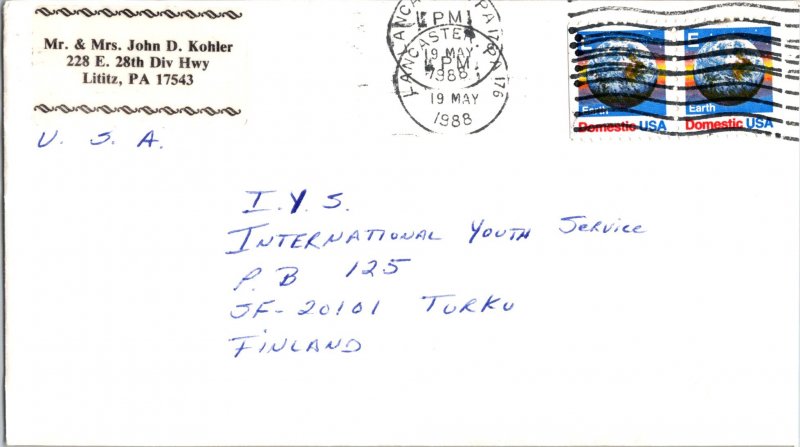 Mr. & Mrs. John D. Kohler
228 E. 28th Div Hwy
Lititz, PA 17543
U. S. A.
LANCASTER, PA 176
PM
19 MAY
1988
LANCASTER, PA 176
PM
19 MAY
1988
E
Earth
Domestic USA
E
Earth
Domestic USA
I.Y.S.
INTERNATIONAL YOUTH SERVICE
P.B 125
SF-20101 TURKU
FINLAND